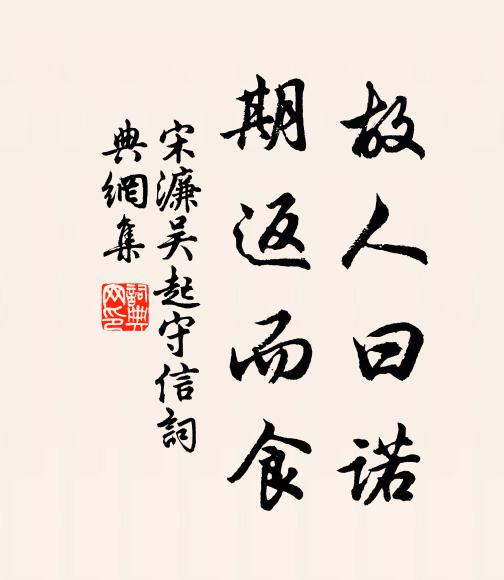 故人曰诺
期返而食
宋濂吴起守信詞
典網集
詞典
网印